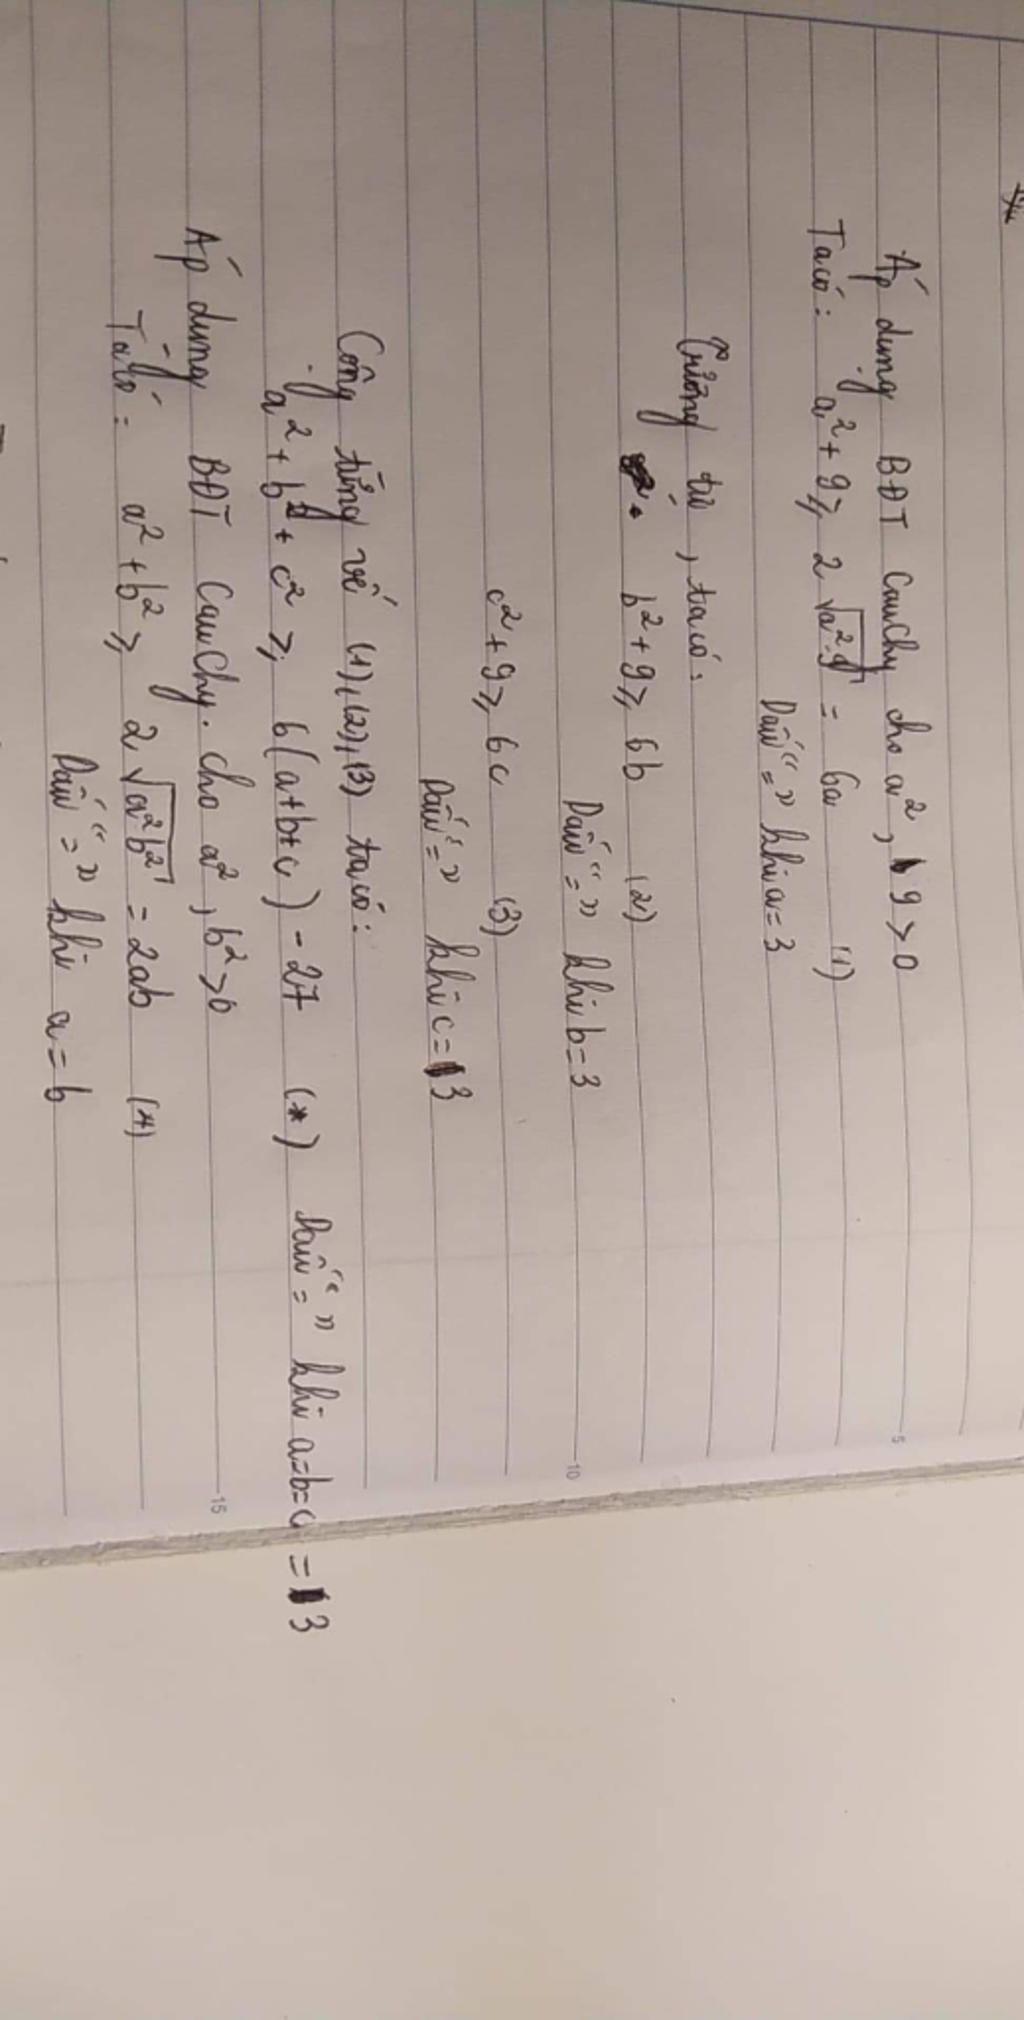 Áp dụng BĐT Cauchy cho a², 9 > 0
Ta có: a² + 9 ≥ 2√a².9 = 6a (1)
Dấu "=" khi a = 3
Tương tự, ta có:
b² + 9 ≥ 6b (2)
Dấu "=" khi b = 3
c² + 9 ≥ 6c (3)
Dấu "=" khi c = 3
Cộng từng vế (1), (2), (3) ta có:
a² + b² + c² ≥ 6(a+b+c) - 27 (*) Dấu "=" khi a=b=c = 3
Áp dụng BĐT Cauchy. cho a², b² > 0
Ta có: a² + b² ≥ 2√a²b² = 2ab (4)
Dấu "=" khi a = b
5
10
15